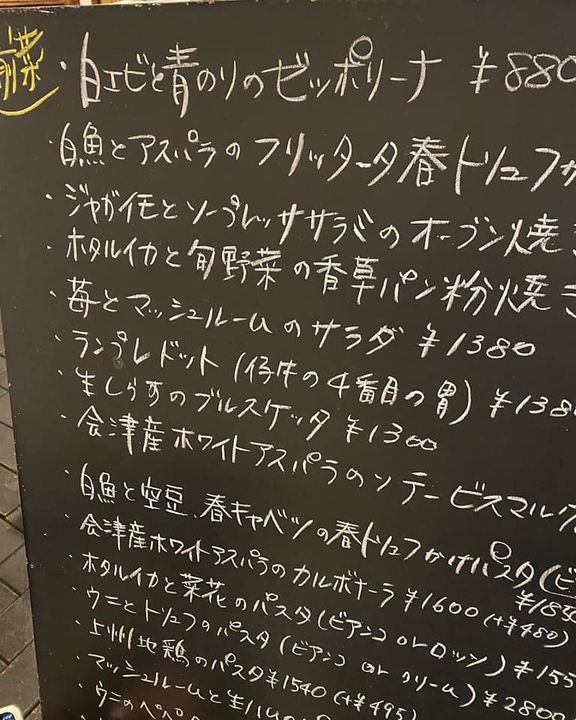 前菜
・白エビと青のりのゼッポリーナ ¥880
・白魚とアスパラのフリッタータ春トリュフか
・ジャガイモとソープレッササラミのオーブン焼き
・ホタルイカと旬野菜の香草パン粉焼き
・苺とマッシュルームのサラダ ¥1380
・ランプレドット(仔牛の4番目の胃) ¥138
・生しらすのブルスケッタ ¥1300
・会津産ホワイトアスパラのソテービスマルク
・白魚と空豆、春キャベツの春トリュフかけパスタ(ビ
¥1850
・会津産ホワイトアスパラのカルボナーラ ¥1600(+¥480)
・ホタルイカと菜花のパスタ(ビアンコ or ロッソ) ¥155
・ウニとトリュフのパスタ(ビアンコ or クリーム) ¥2800
・上州地鶏のパスタ ¥1540(+¥495)
・マッシュルームと生ハムの
・ウニのペペ